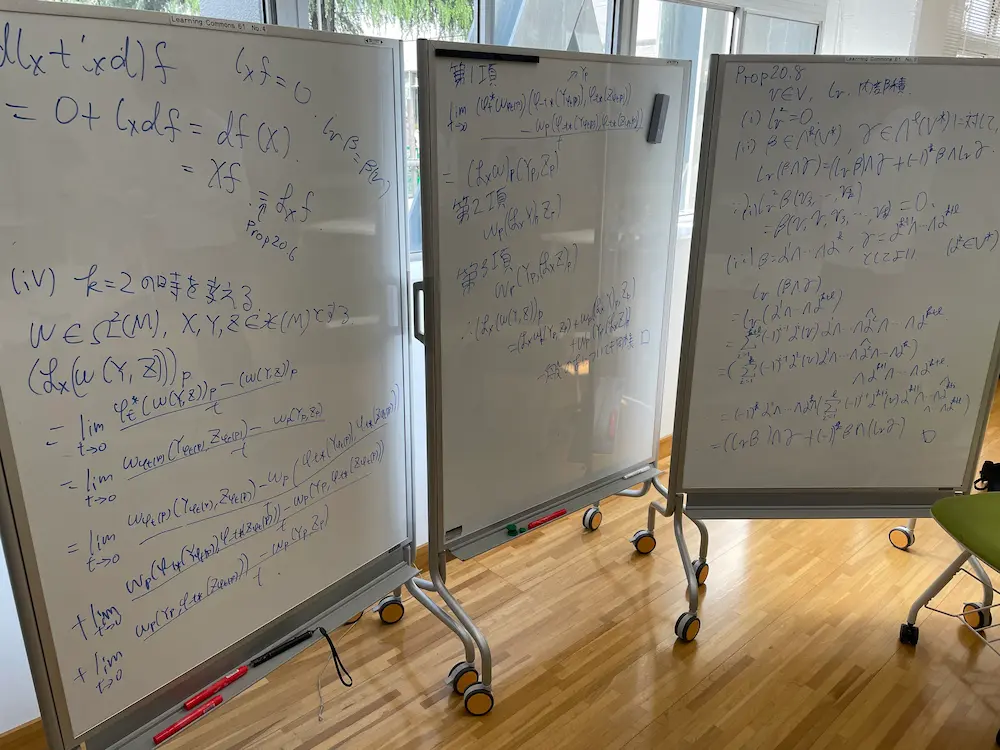 Learning Commons B1 No.4
d(ι_X + ι_X d)f    ι_X f = 0
= 0 + ι_X df = df(X)    ι_v β = β(v)
= Xf
= ℒ_X f
Prop 20.6
(iv) k=2の時を考える
ω ∈ Ω²(M), X, Y, Z ∈ 𝔛(M)とする.
(ℒ_X(ω(Y, Z)))_p
= lim_{t→0} (φ_t^*(ω(Y,Z))_p − (ω(Y,Z))_p) / t
= lim_{t→0} (ω_{φ_t(p)}(Y_{φ_t(p)}, Z_{φ_t(p)}) − ω_p(Y_p, Z_p)) / t
= lim_{t→0} (ω_{φ_t(p)}(Y_{φ_t(p)}, Z_{φ_t(p)}) − ω_p(φ_{-t*}(Y_{φ_t(p)}), φ_{-t*}(Z_{φ_t(p)}))) / t
+ lim_{t→0} (ω_p(φ_{-t*}(Y_{φ_t(p)}), φ_{-t*}(Z_{φ_t(p)})) − ω_p(Y_p, φ_{-t*}(Z_{φ_t(p)}))) / t
+ lim_{t→0} (ω_p(Y_p, φ_{-t*}(Z_{φ_t(p)})) − ω_p(Y_p, Z_p)) / t
第1項    → Y_p
lim_{t→0} ((φ_t^* ω_{φ_t(p)})(φ_{-t*}(Y_{φ_t(p)}), φ_{-t*}(Z_{φ_t(p)})) − ω_p(φ_{-t*}(Y_{φ_t(p)}), φ_{-t*}(Z_{φ_t(p)}))) / t
= (ℒ_X ω)_p(Y_p, Z_p)
第2項
ω_p((ℒ_X Y)_p, Z_p)
第3項
ω_p(Y_p, (ℒ_X Z)_p)
∴ (ℒ_X(ω(Y,Z)))_p
= (ℒ_X ω)_p(Y_p, Z_p) + ω_p((ℒ_X Y)_p, Z_p)
+ ω_p(Y_p, (ℒ_X Z)_p)
も同様 □
Learning Commons B1 No.
Prop 20.8
v∈V, ι_v 内部積.
(i) ι_v² = 0.
(ii) β ∈ Λ^k(V*), γ ∈ Λ^ℓ(V*)に対して,
ι_v(β∧γ) = (ι_v β)∧γ + (-1)^k β∧ι_v γ
∵ (i) ι_v² β(v_3, …, v_k)
= β(v, v, v_3, … v_k) = 0.
(ii) β = α^1∧…∧α^k, γ = α^{k+1}∧…∧α^{k+ℓ}
としてよい (α^i ∈ V*)
ι_v(β∧γ)
= ι_v(α^1∧…∧α^{k+ℓ})
= Σ_{i=1}^{k+ℓ} (-1)^{i-1} α^i(v) α^1∧…∧α̂^i∧…∧α^{k+ℓ}
= (Σ_{i=1}^{k} (-1)^{i-1} α^i(v) α^1∧…∧α̂^i∧…∧α^k)
∧α^{k+1}∧…∧α^{k+ℓ}
+ (-1)^k α^1∧…∧α^k∧(Σ_{i=1}^{ℓ} (-1)^{i-1} α^{k+i}(v) α^{k+1}∧…∧α̂^{k+i}∧…∧α^{k+ℓ})
= (ι_v β)∧γ + (-1)^k β∧(ι_v γ) □